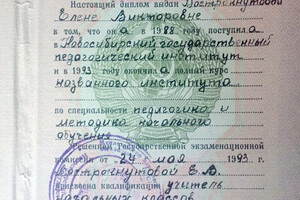 Настоящий диплом выдан Вострокнутовой
Елене Викторовне
в том, что он а в 1988 году поступил а
в Новосибирский государственный
педагогический институт
и в 1993 году окончил а полный курс
названного института
по специальности педагогика и
методика начального
обучения
Решением Государственной экзаменационной
комиссии от 24 мая 1993 г.
Вострокнутовой Е. В.
присвоена квалификация учитель
начальных классов